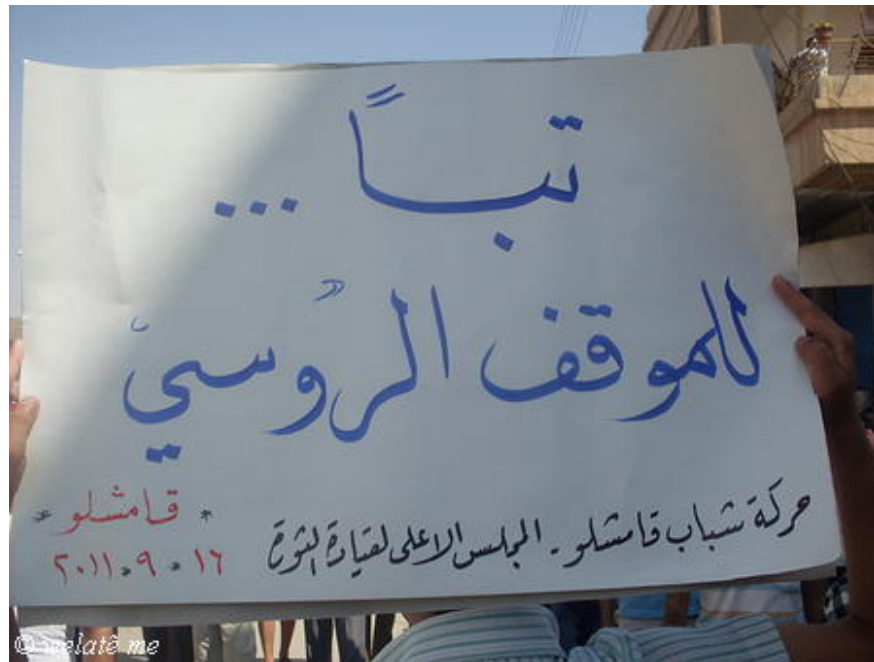 تباً ...
للموقف الروسي
حركة شباب قامشلو - المجلس الاعلى لقيادة الثورة
* قامشلو *
١٦ . ٩ . ٢٠١١
© welatê me